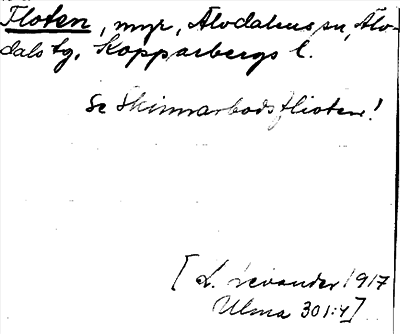 Floten, myr, Älvdalens sn, Älv-
dals tg, Kopparbergs l.
Se Skinnarbodsflioten!
[L. Levander 1917
Ulma 301:4]